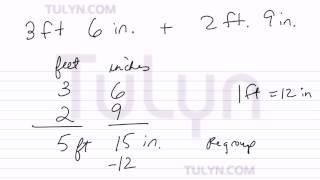 TULYN.COM
3 ft 6 in. + 2 ft. 9 in.
feet inches
3 6
2 9 1 ft = 12 in
5 ft 15 in. Regroup
-12
TULYN.COM
TULYN